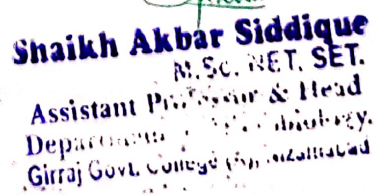 Shaikh Akbar Siddique
M.Sc. NET. SET.
Assistant Professor & Head
Department
Girraj Govt. College (A), Nizamabad